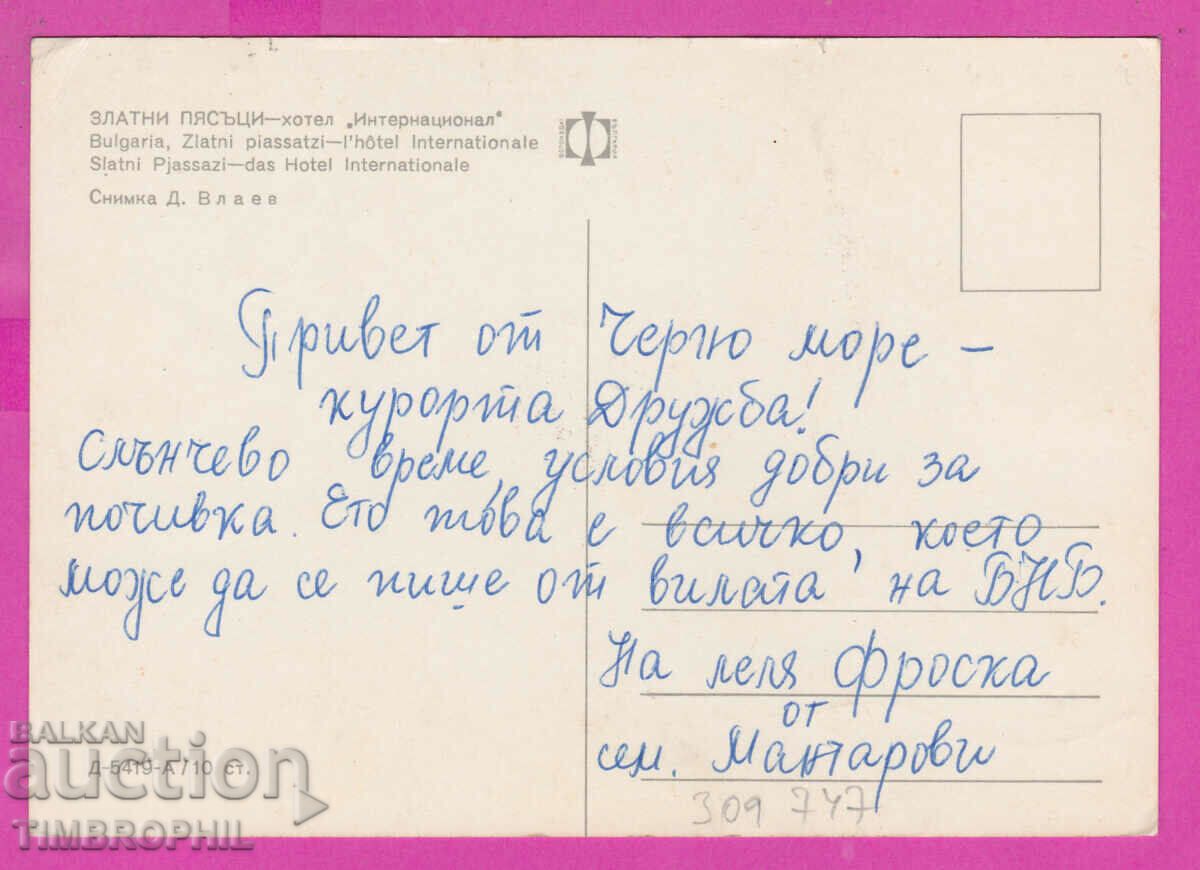 ЗЛАТНИ ПЯСЪЦИ—хотел „Интернационал"
Bulgaria, Zlatni piassatzi—l'hôtel Internationale
Slatni Pjassazi—das Hotel Internationale
Снимка Д. Влаев
Привет от Черно море –
курорта Дружба!
Слънчево време, условия добри за
почивка. Ето това е всичко, което
може да се пише от вилата на БНБ.
На леля Фроска
от
сем. Мантарови
Д-5419-А / 10 ст.
309 747
BALKAN
auction
TIMBROPHIL